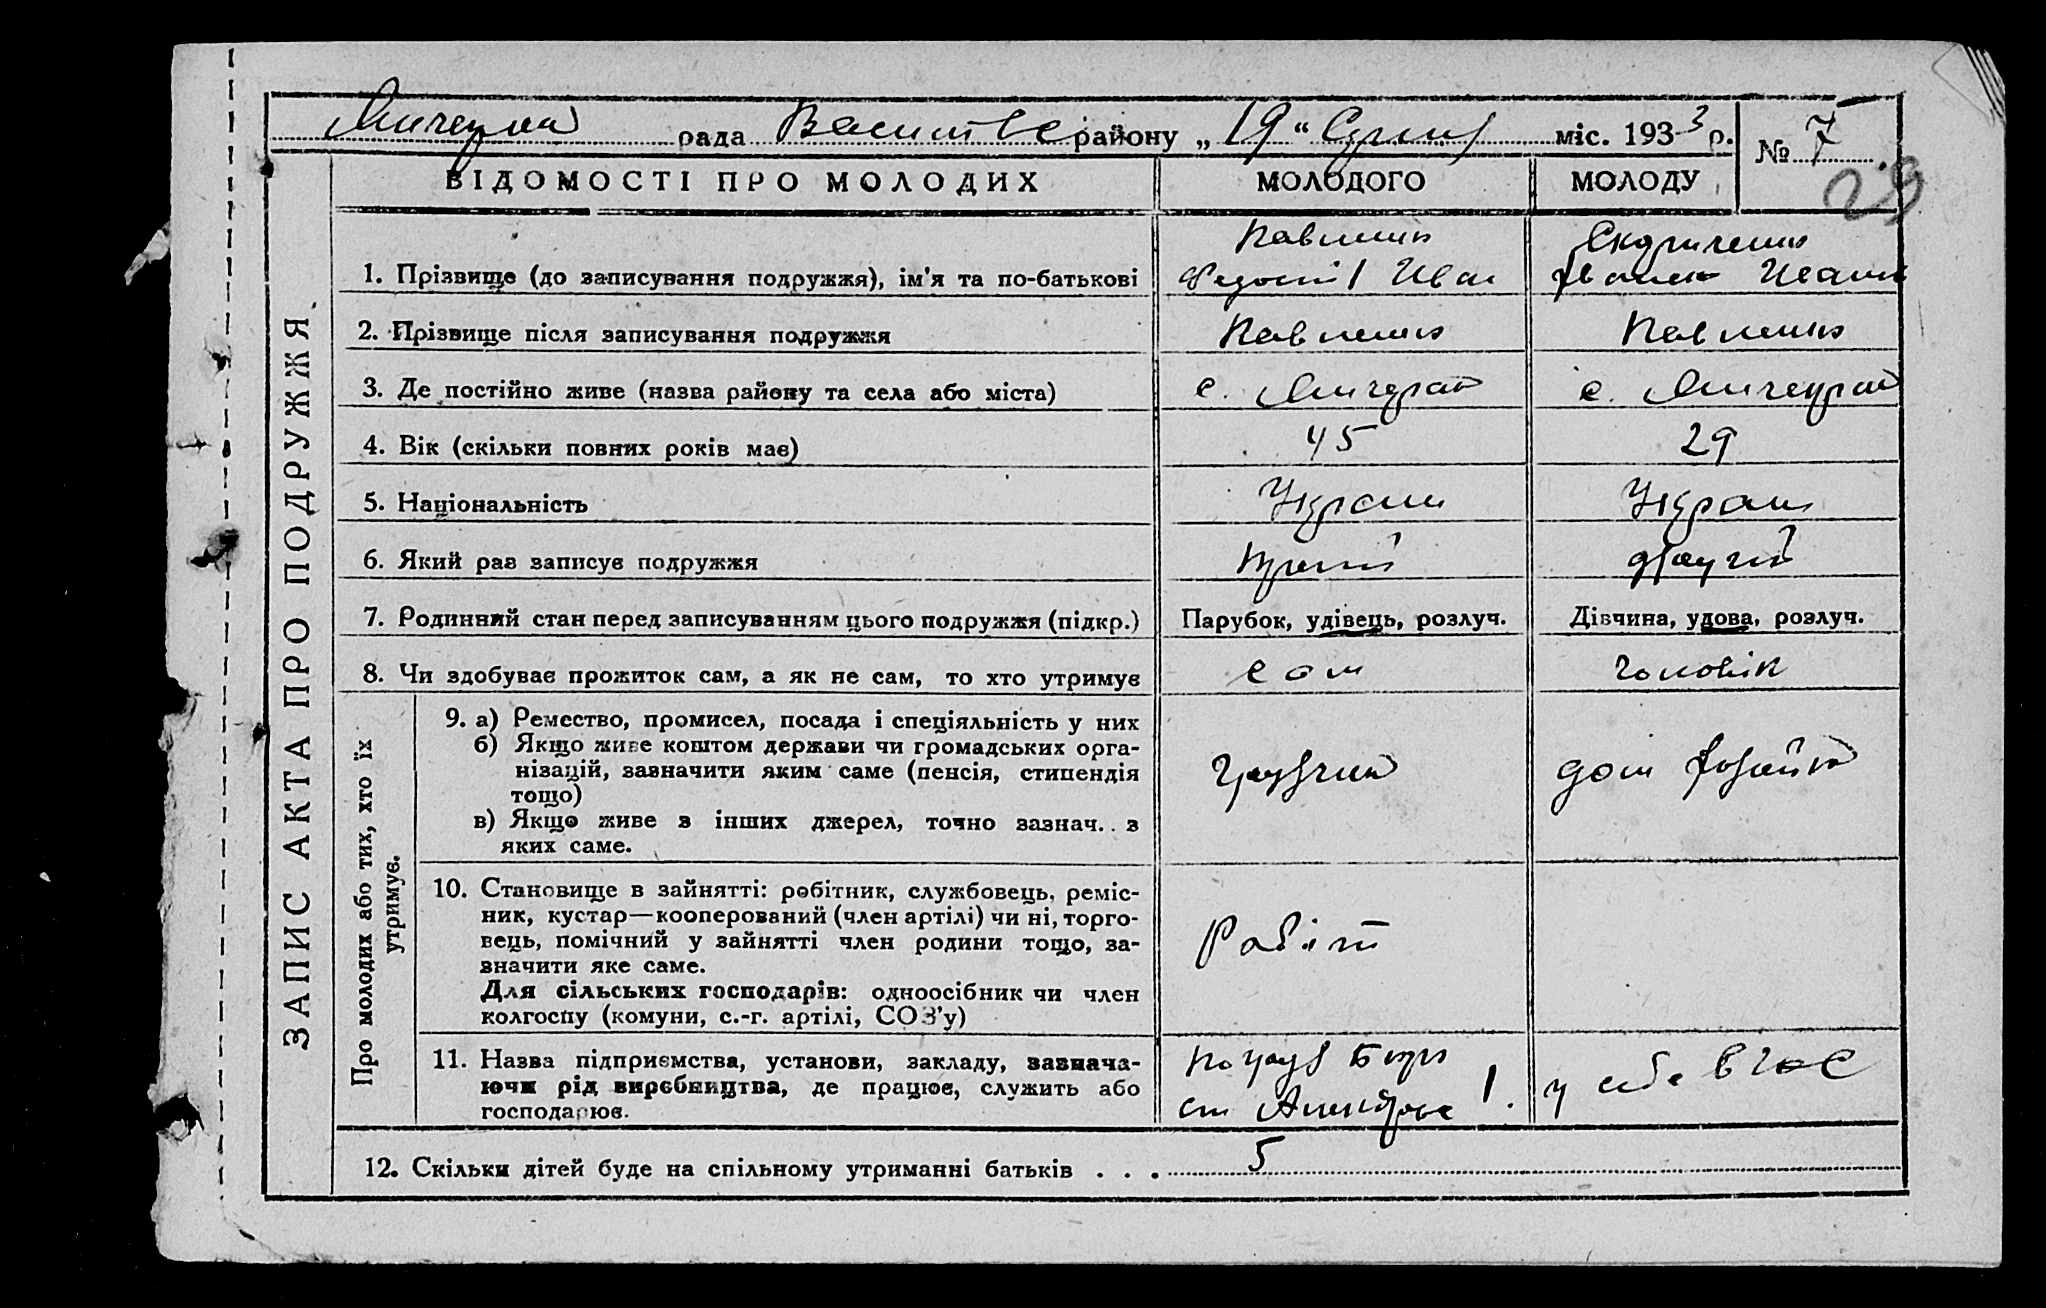 рада Василівс району „ 19 “ міс. 193 3 р. № 7
29
ВІДОМОСТІ ПРО МОЛОДИХ МОЛОДОГО МОЛОДУ
1. Прізвище (до записування подружжя), ім’я та по-батькові
2. Прізвище після записування подружжя
3. Де постійно живе (назва району та села або міста) с. с.
4. Вік (скільки повних років має) 45 29
5. Національність Україн Україн
6. Який раз записує подружжя другий
7. Родинний стан перед записуванням цього подружжя (підкр.) Парубок, удівець, розлуч. Дівчина, удова, розлуч.
8. Чи здобуває прожиток сам, а як не сам, то хто утримує сам чоловік
ЗАПИС АКТА ПРО ПОДРУЖЖЯ
Про молодих або тих, хто їх
утримує.
9. а) Ремество, промисел, посада і спеціяльність у них
б) Якщо живе коштом держави чи громадських орга-
нізацій, зазначити яким саме (пенсія, стипендія
тощо)
в) Якщо живе з інших джерел, точно зазнач. з
яких саме.
грузчик дом хозяйка
10. Становище в зайнятті: робітник, службовець, реміс-
ник, кустар—кооперований (член артілі) чи ні, торго-
вець, помічний у зайнятті член родини тощо, за-
значити яке саме.
Для сільських господарів: одноосібник чи член
колгоспу (комуни, с.-г. артілі, СОЗ’у)
Робіт
11. Назва підприємства, установи, закладу, зазнача-
ючи рід виробництва, де працює, служить або
господарює.
ст у себе в
12. Скільки дітей буде на спільному утриманні батьків . . . 5